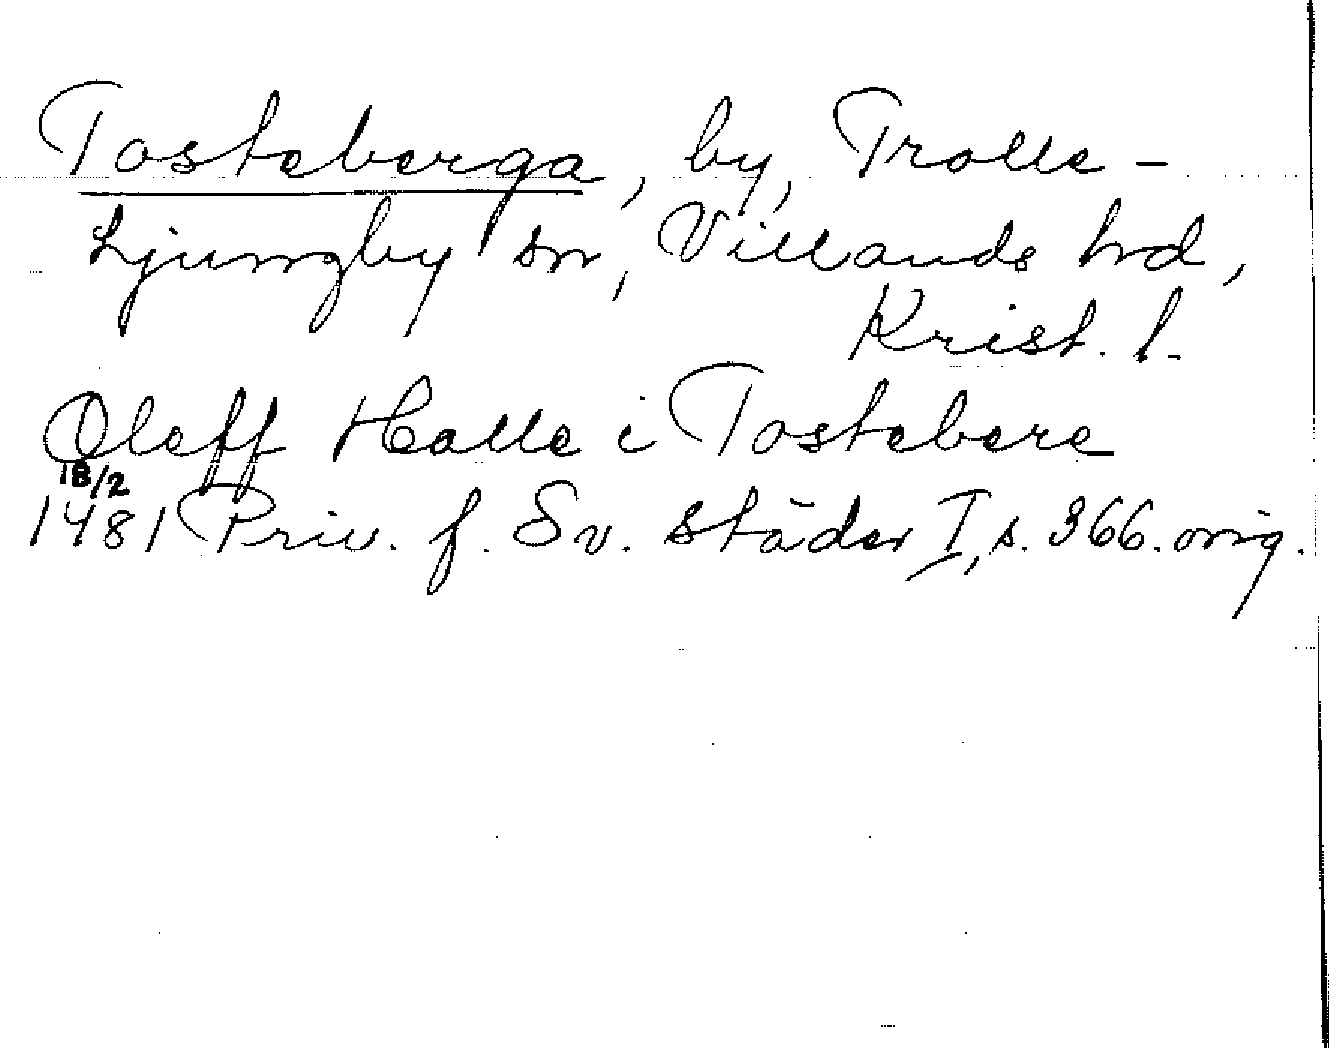 Tosteberga, by, Trolle-
Ljungby sn, Villands hd,
Krist. l.
Oleff Halle i Tostebere
18/2
1481 Priv. f. Sv. städer I, s. 366. orig.